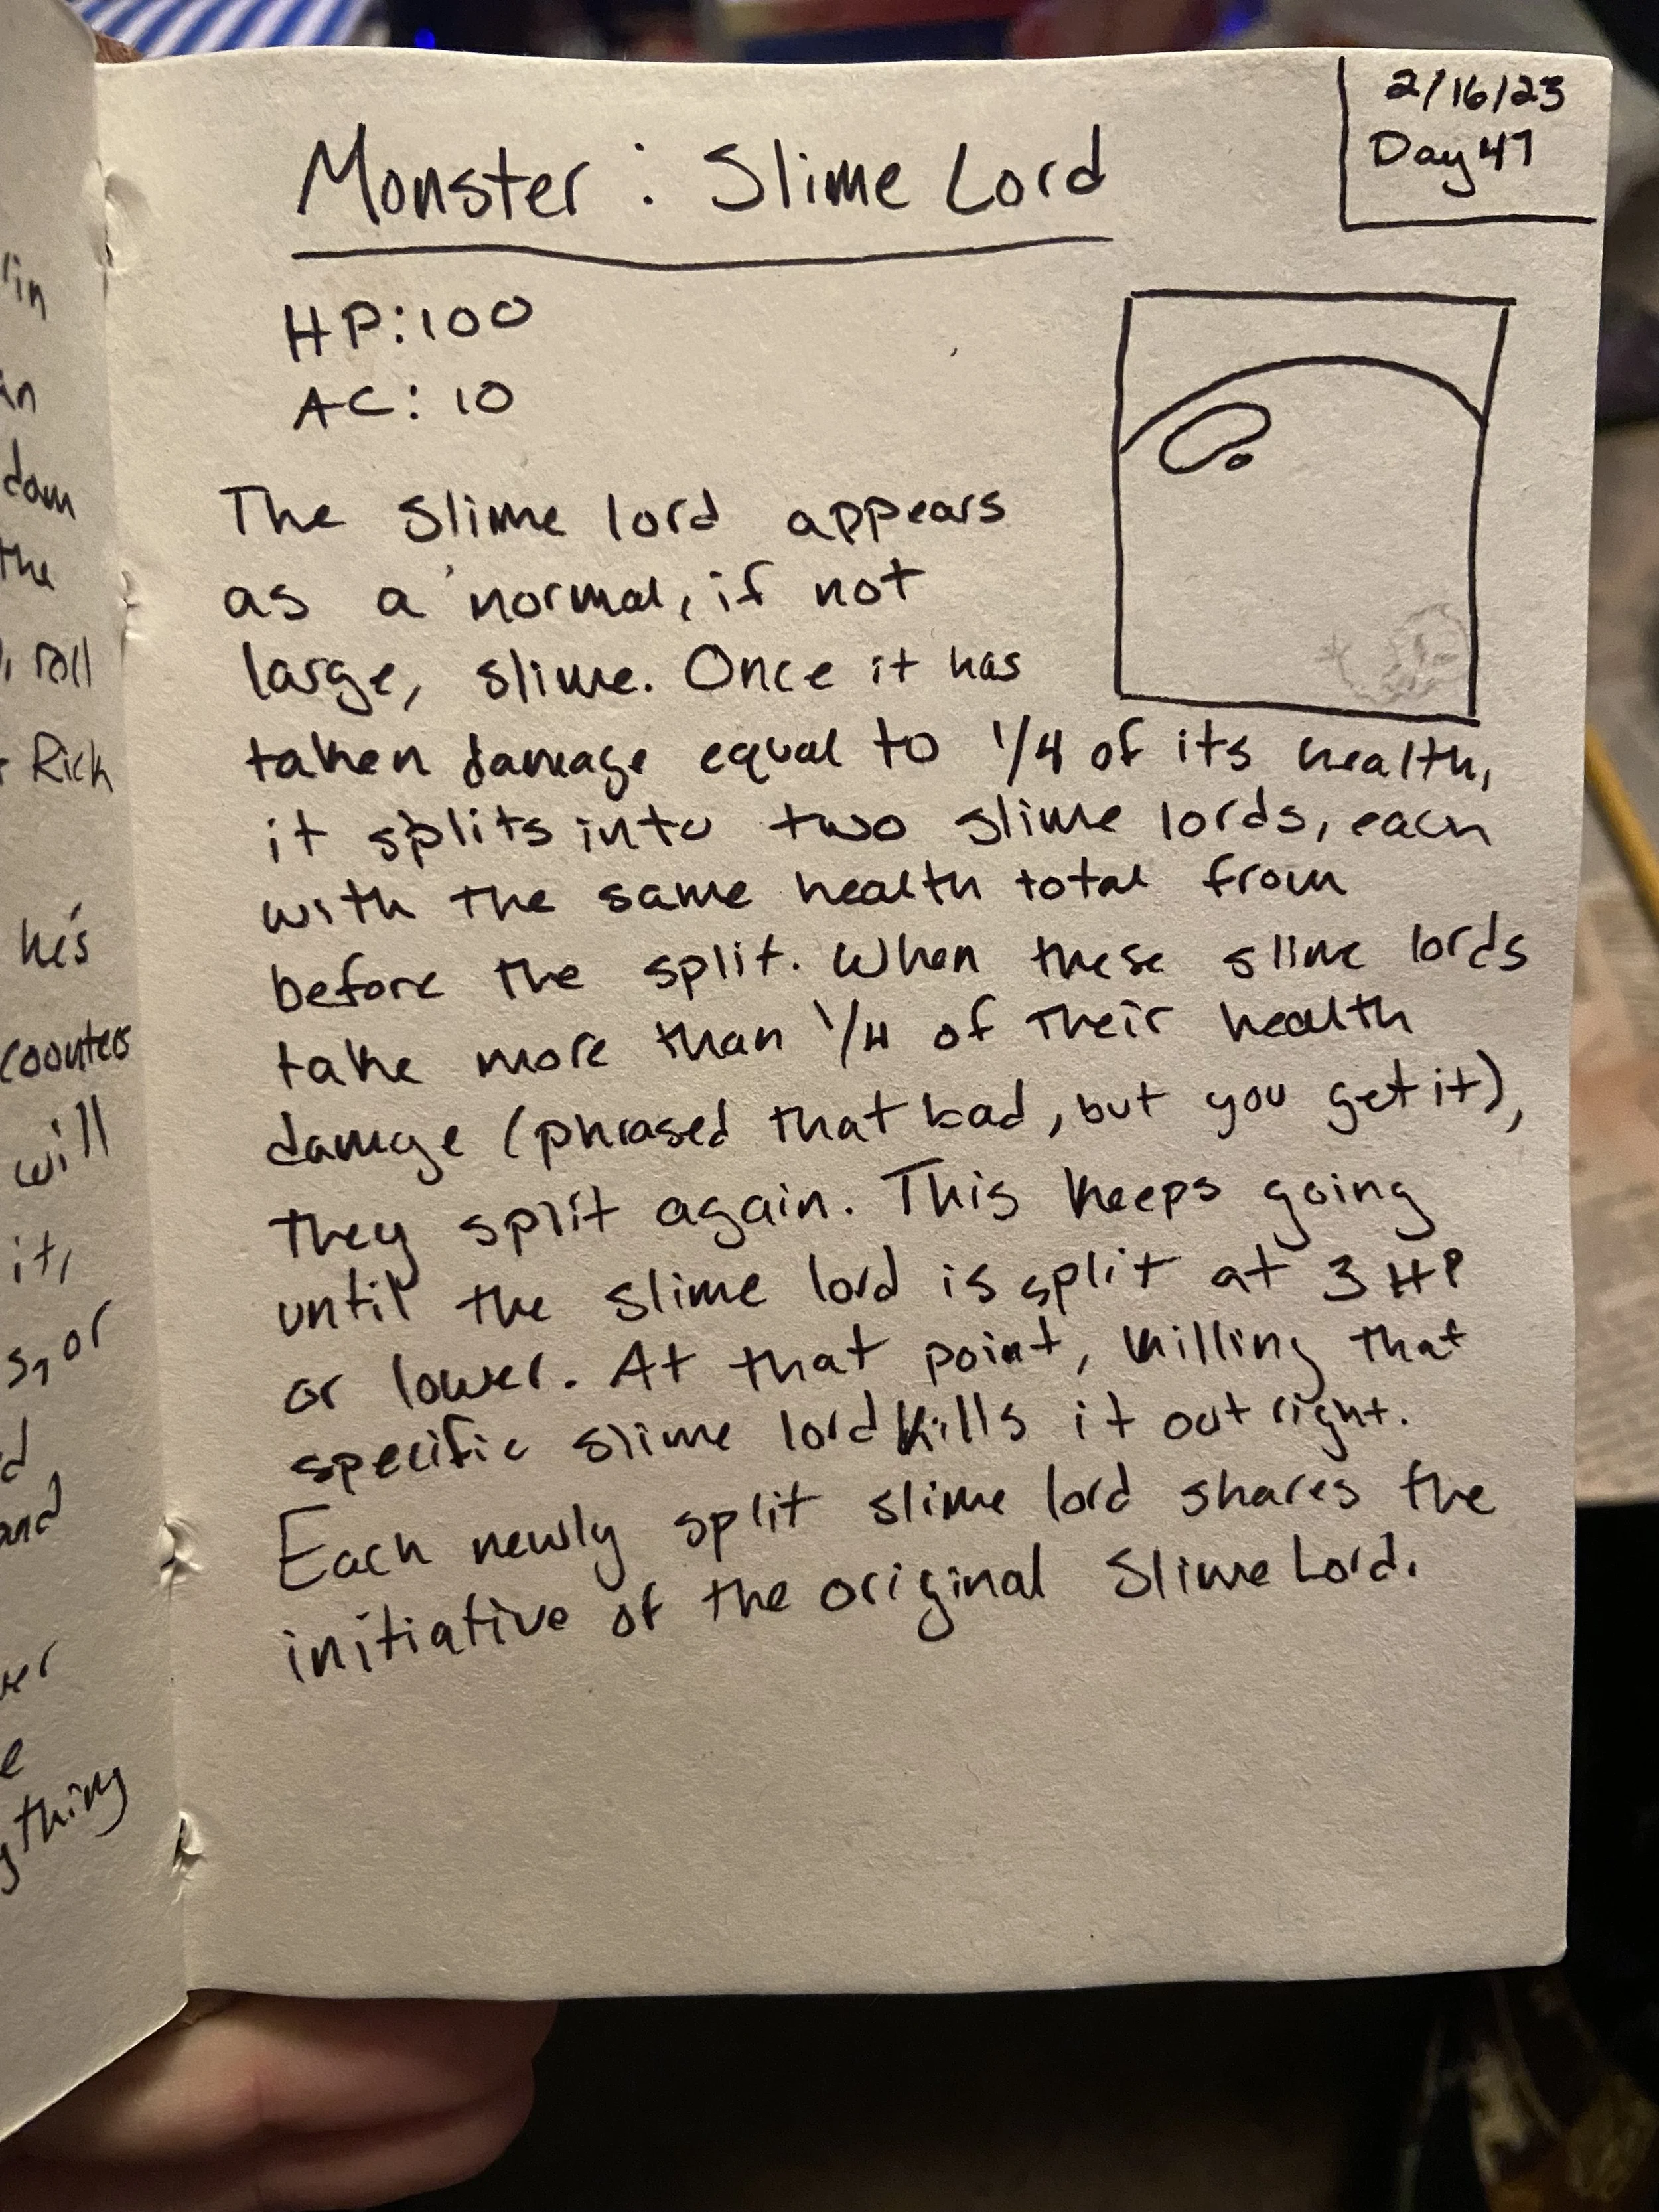 Monster: Slime Lord
2/16/23
Day 47
HP: 100
AC: 10
The slime lord appears
as a normal, if not
large, slime. Once it has
taken damage equal to 1/4 of its health,
it splits into two slime lords, each
with the same health total from
before the split. When these slime lords
take more than 1/4 of their health
damage (phrased that bad, but you get it),
they split again. This keeps going
until the slime lord is split at 3 HP
or lower. At that point, killing that
specific slime lord kills it outright.
Each newly split slime lord shares the
initiative of the original Slime Lord.
roll
Rick
he's
will
it,
s, or
and